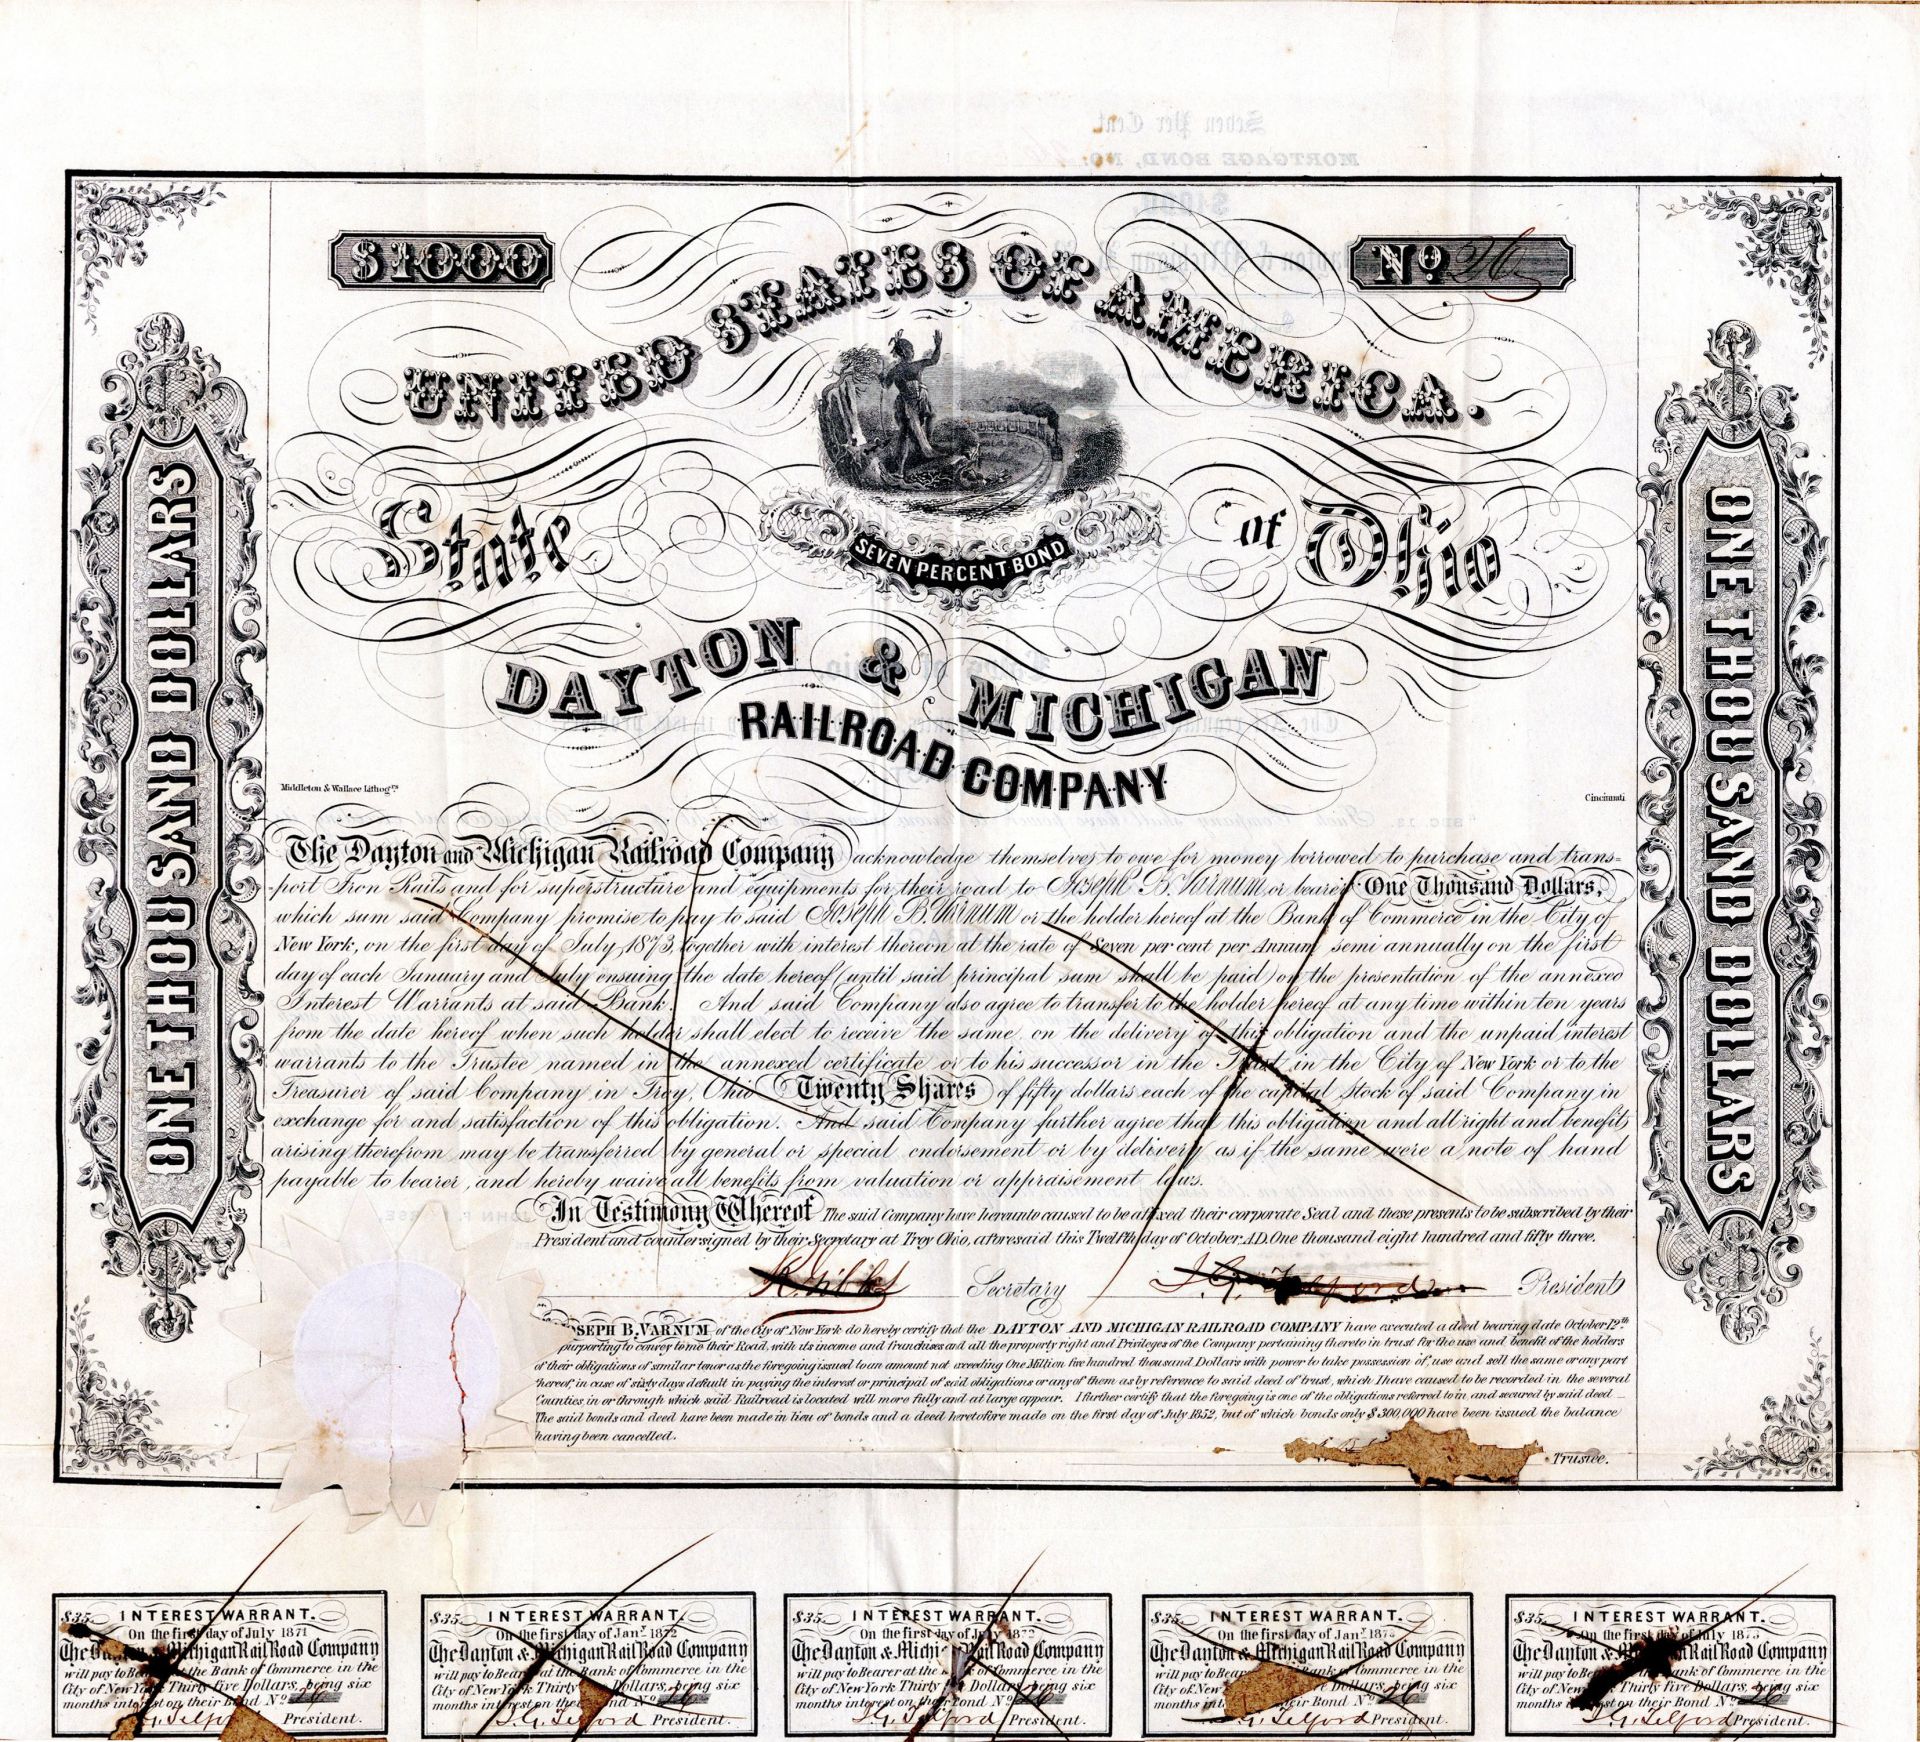 Seven Per Cent
MORTGAGE BOND, NO. 26
$1000
$1000
No. 26
UNITED STATES OF AMERICA.
State of Ohio
SEVEN PER CENT BOND
DAYTON & MICHIGAN
RAILROAD COMPANY
ONE THOUSAND DOLLARS
ONE THOUSAND DOLLARS
Middleton & Wallace Lithogrs
Cincinnati
The Dayton and Michigan Railroad Company acknowledge themselves to owe for money borrowed to purchase and trans=
=port Iron Rails and for superstructure and equipments for their road to Joseph B. Varnum, or bearer One Thousand Dollars,
which sum said Company promise to pay to said Joseph B. Varnum or the holder hereof at the Bank of Commerce in the City of
New York, on the first day of July, 1873, together with interest thereon at the rate of Seven per cent per Annum, semi annually on the first
day of each January and July ensuing the date hereof (until said principal sum shall be paid) on the presentation of the annexed
Interest Warrants at said Bank. And said Company also agree to transfer to the holder hereof at any time within ten years
from the date hereof when such holder shall elect to receive the same, on the delivery of this obligation and the unpaid interest
warrants to the Trustee named in the annexed certificate, or to his successor in the Trust, in the City of New York or to the
Treasurer of said Company in Troy, Ohio Twenty Shares of fifty dollars each of the capital Stock of said Company in
exchange for and satisfaction of this obligation. And said Company further agree that this obligation and all right and benefits
arising therefrom may be transferred by general or special endorsement or by delivery as if the same were a note of hand
payable to bearer, and hereby waive all benefits from valuation or appraisement laws.
In Testimony Whereof The said Company have hereunto caused to be affixed their corporate Seal and these presents to be subscribed by their
President and countersigned by their Secretary at Troy Ohio, aforesaid this Twelfth day of October, A.D. One thousand eight hundred and fifty three.
Secretary J. G. Telford President
JOSEPH B. VARNUM of the City of New York do hereby certify that the DAYTON AND MICHIGAN RAILROAD COMPANY have executed a deed bearing date October 12th
purporting to convey to me their Road, with its income and franchises and all the property right and Privileges of the Company pertaining thereto in trust for the use and benefit of the holders
of their obligations of similar tenor as the foregoing issued to an amount not exceeding One Million five hundred thousand Dollars with power to take possession of, use and sell the same or any part
thereof, in case of sixty days default in paying the interest or principal of said obligations or any of them as by reference to said deed of trust, which I have caused to be recorded in the several
Counties, in or through which said Railroad is located will more fully and at large appear. I further certify that the foregoing is one of the obligations referred to in and secured by said deed
The said bonds and deed have been made in lieu of bonds and a deed heretofore made on the first day of July 1852, but of which bonds only $300,000 have been issued the balance
having been cancelled.
Trustee.
$35. INTEREST WARRANT.
On the first day of July 1871
The Dayton & Michigan Rail Road Company
will pay to Bearer at the Bank of Commerce in the
City of New York Thirty five Dollars, being six
months interest on their Bond No. 26
J. G. Telford President.
$35. INTEREST WARRANT.
On the first day of Jany 1872
The Dayton & Michigan Rail Road Company
will pay to Bearer at the Bank of Commerce in the
City of New York Thirty Dollars, being six
months interest on their Bond No. 26
J. G. Telford President.
$35. INTEREST WARRANT.
On the first day of July 1872
The Dayton & Michigan Rail Road Company
will pay to Bearer at the Bank of Commerce in the
City of New York Thirty five Dollars, being six
months interest on their Bond No. 26
J. G. Telford President.
$35. INTEREST WARRANT.
On the first day of Jany 1873
The Dayton & Michigan Rail Road Company
will pay to Bearer Bank of Commerce in the
City of New five Dollars, being six
months their Bond No. 26
J. G. Telford President.
$35. INTEREST WARRANT.
On the first day of July 1873
The Dayton & Michigan Rail Road Company
will pay to Bearer Bank of Commerce in the
City of New York Thirty five Dollars, being six
months interest on their Bond No. 26
J. G. Telford President.